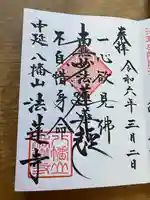 奉拝
令和六年三月二日
一心欲見佛
南無妙法蓮華経
不自惜身命
中延八幡山
法蓮寺